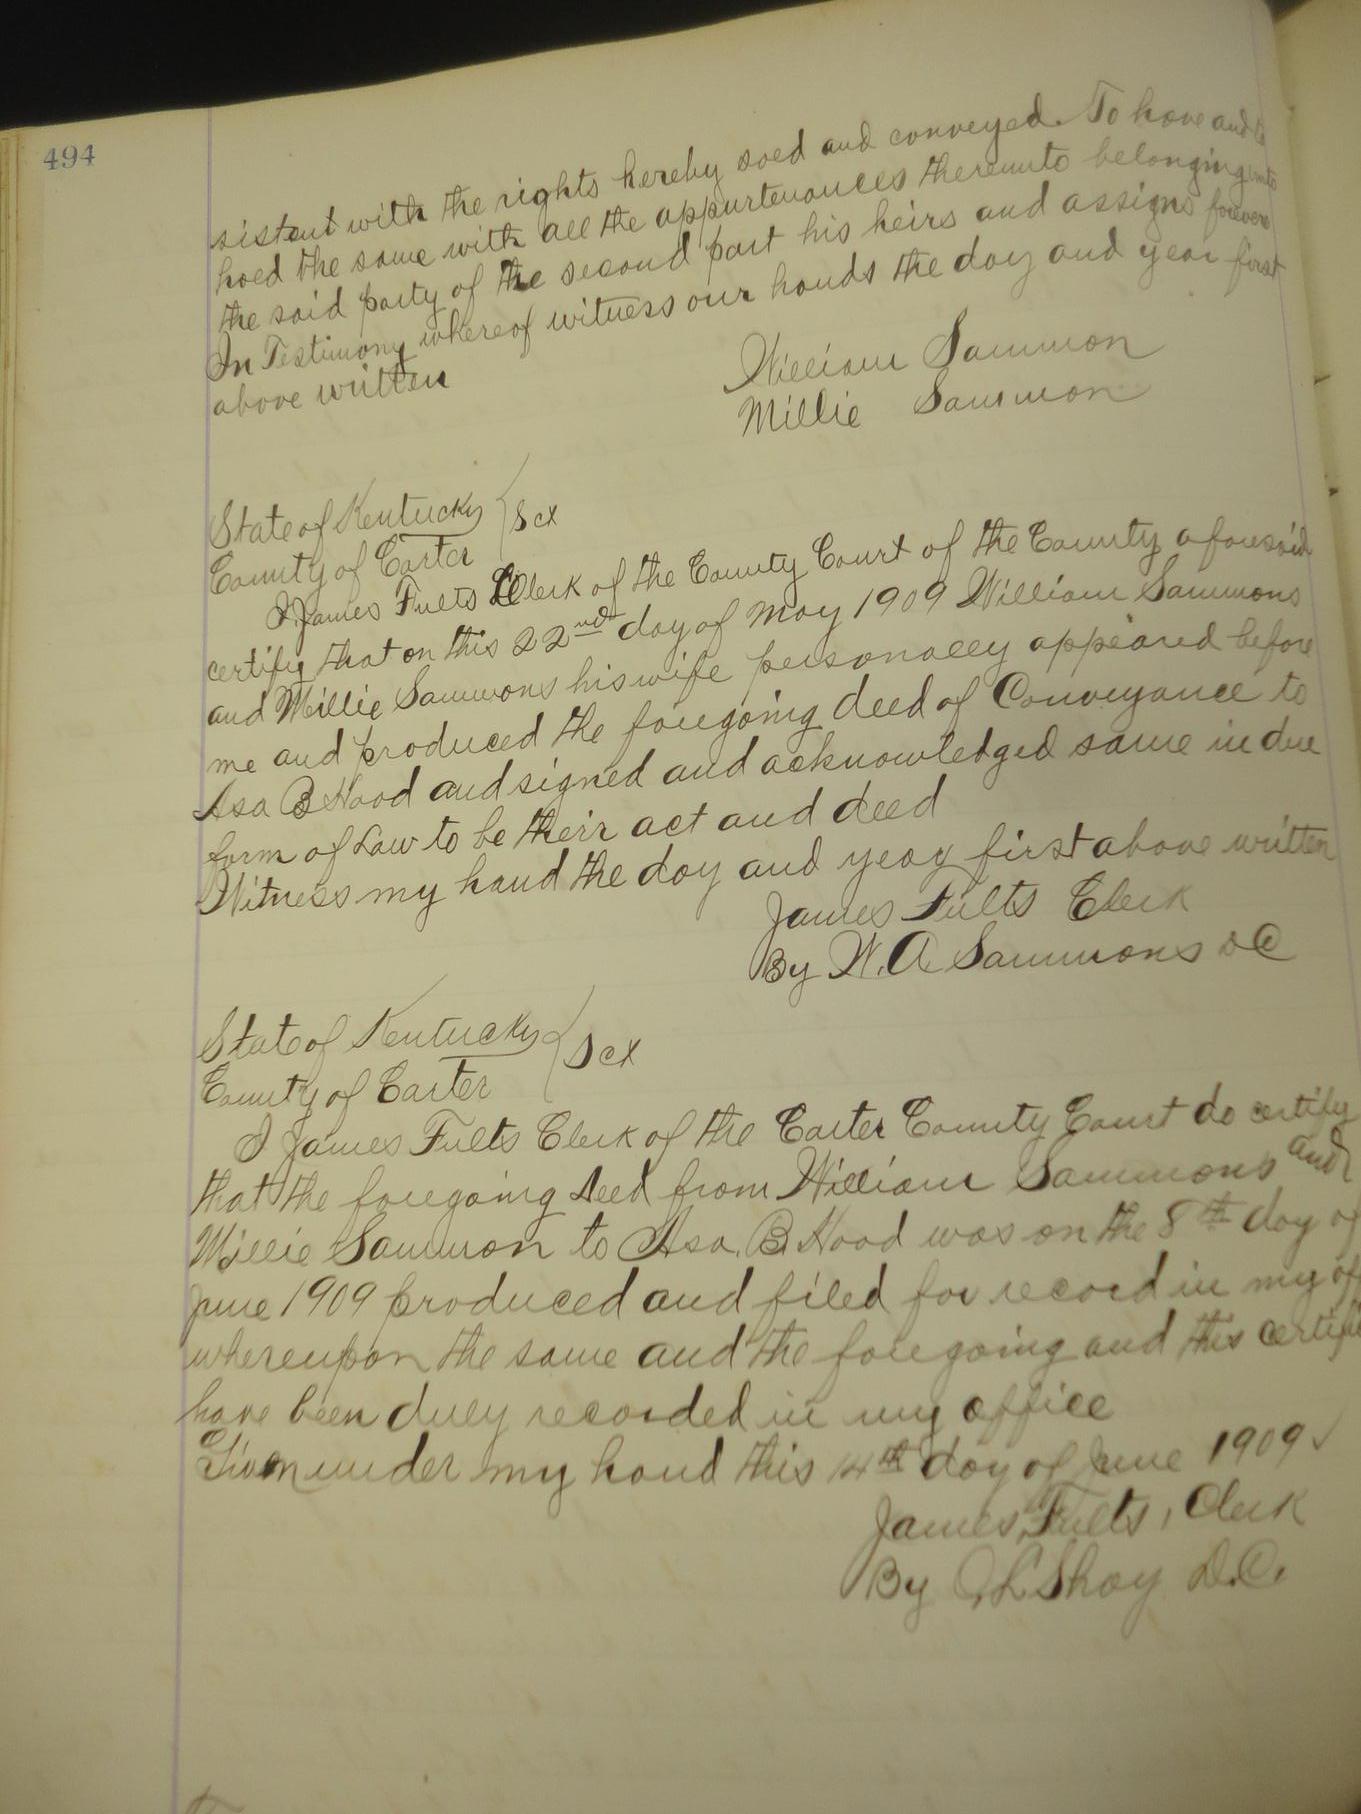 494
sistent with the rights hereby sold and conveyed. To have and to
hold the same with all the appurtenances thereunto belonging unto
the said party of the second part his heirs and assigns forever
In Testimony whereof witness our hands the day and year first
above written
William Sammon
Millie Sammon
State of Kentucky
Sct
County of Carter
I James Fults Clerk of the County Court of the County aforesaid
certify that on this 22nd day of May 1909 William Sammons
and Millie Sammons his wife personally appeared before
me and produced the foregoing deed of Conveyance to
Asa B Hood and signed and acknowledged same in due
form of Law to be their act and deed
Witness my hand the day and year first above written
James Fults Clerk
By W. A. Sammons DC
State of Kentucky
Sct
County of Carter
I James Fults Clerk of the Carter County Court do certify
that the foregoing deed from William Sammons and
Millie Sammon to Asa. B. Hood was on the 8th day of
June 1909 produced and filed for record in my of
whereupon the same and the foregoing and this certifi
have been duly recorded in my office
Given under my hand this 14th day of June 1909
James Fults, Clerk
By Shay D.C.